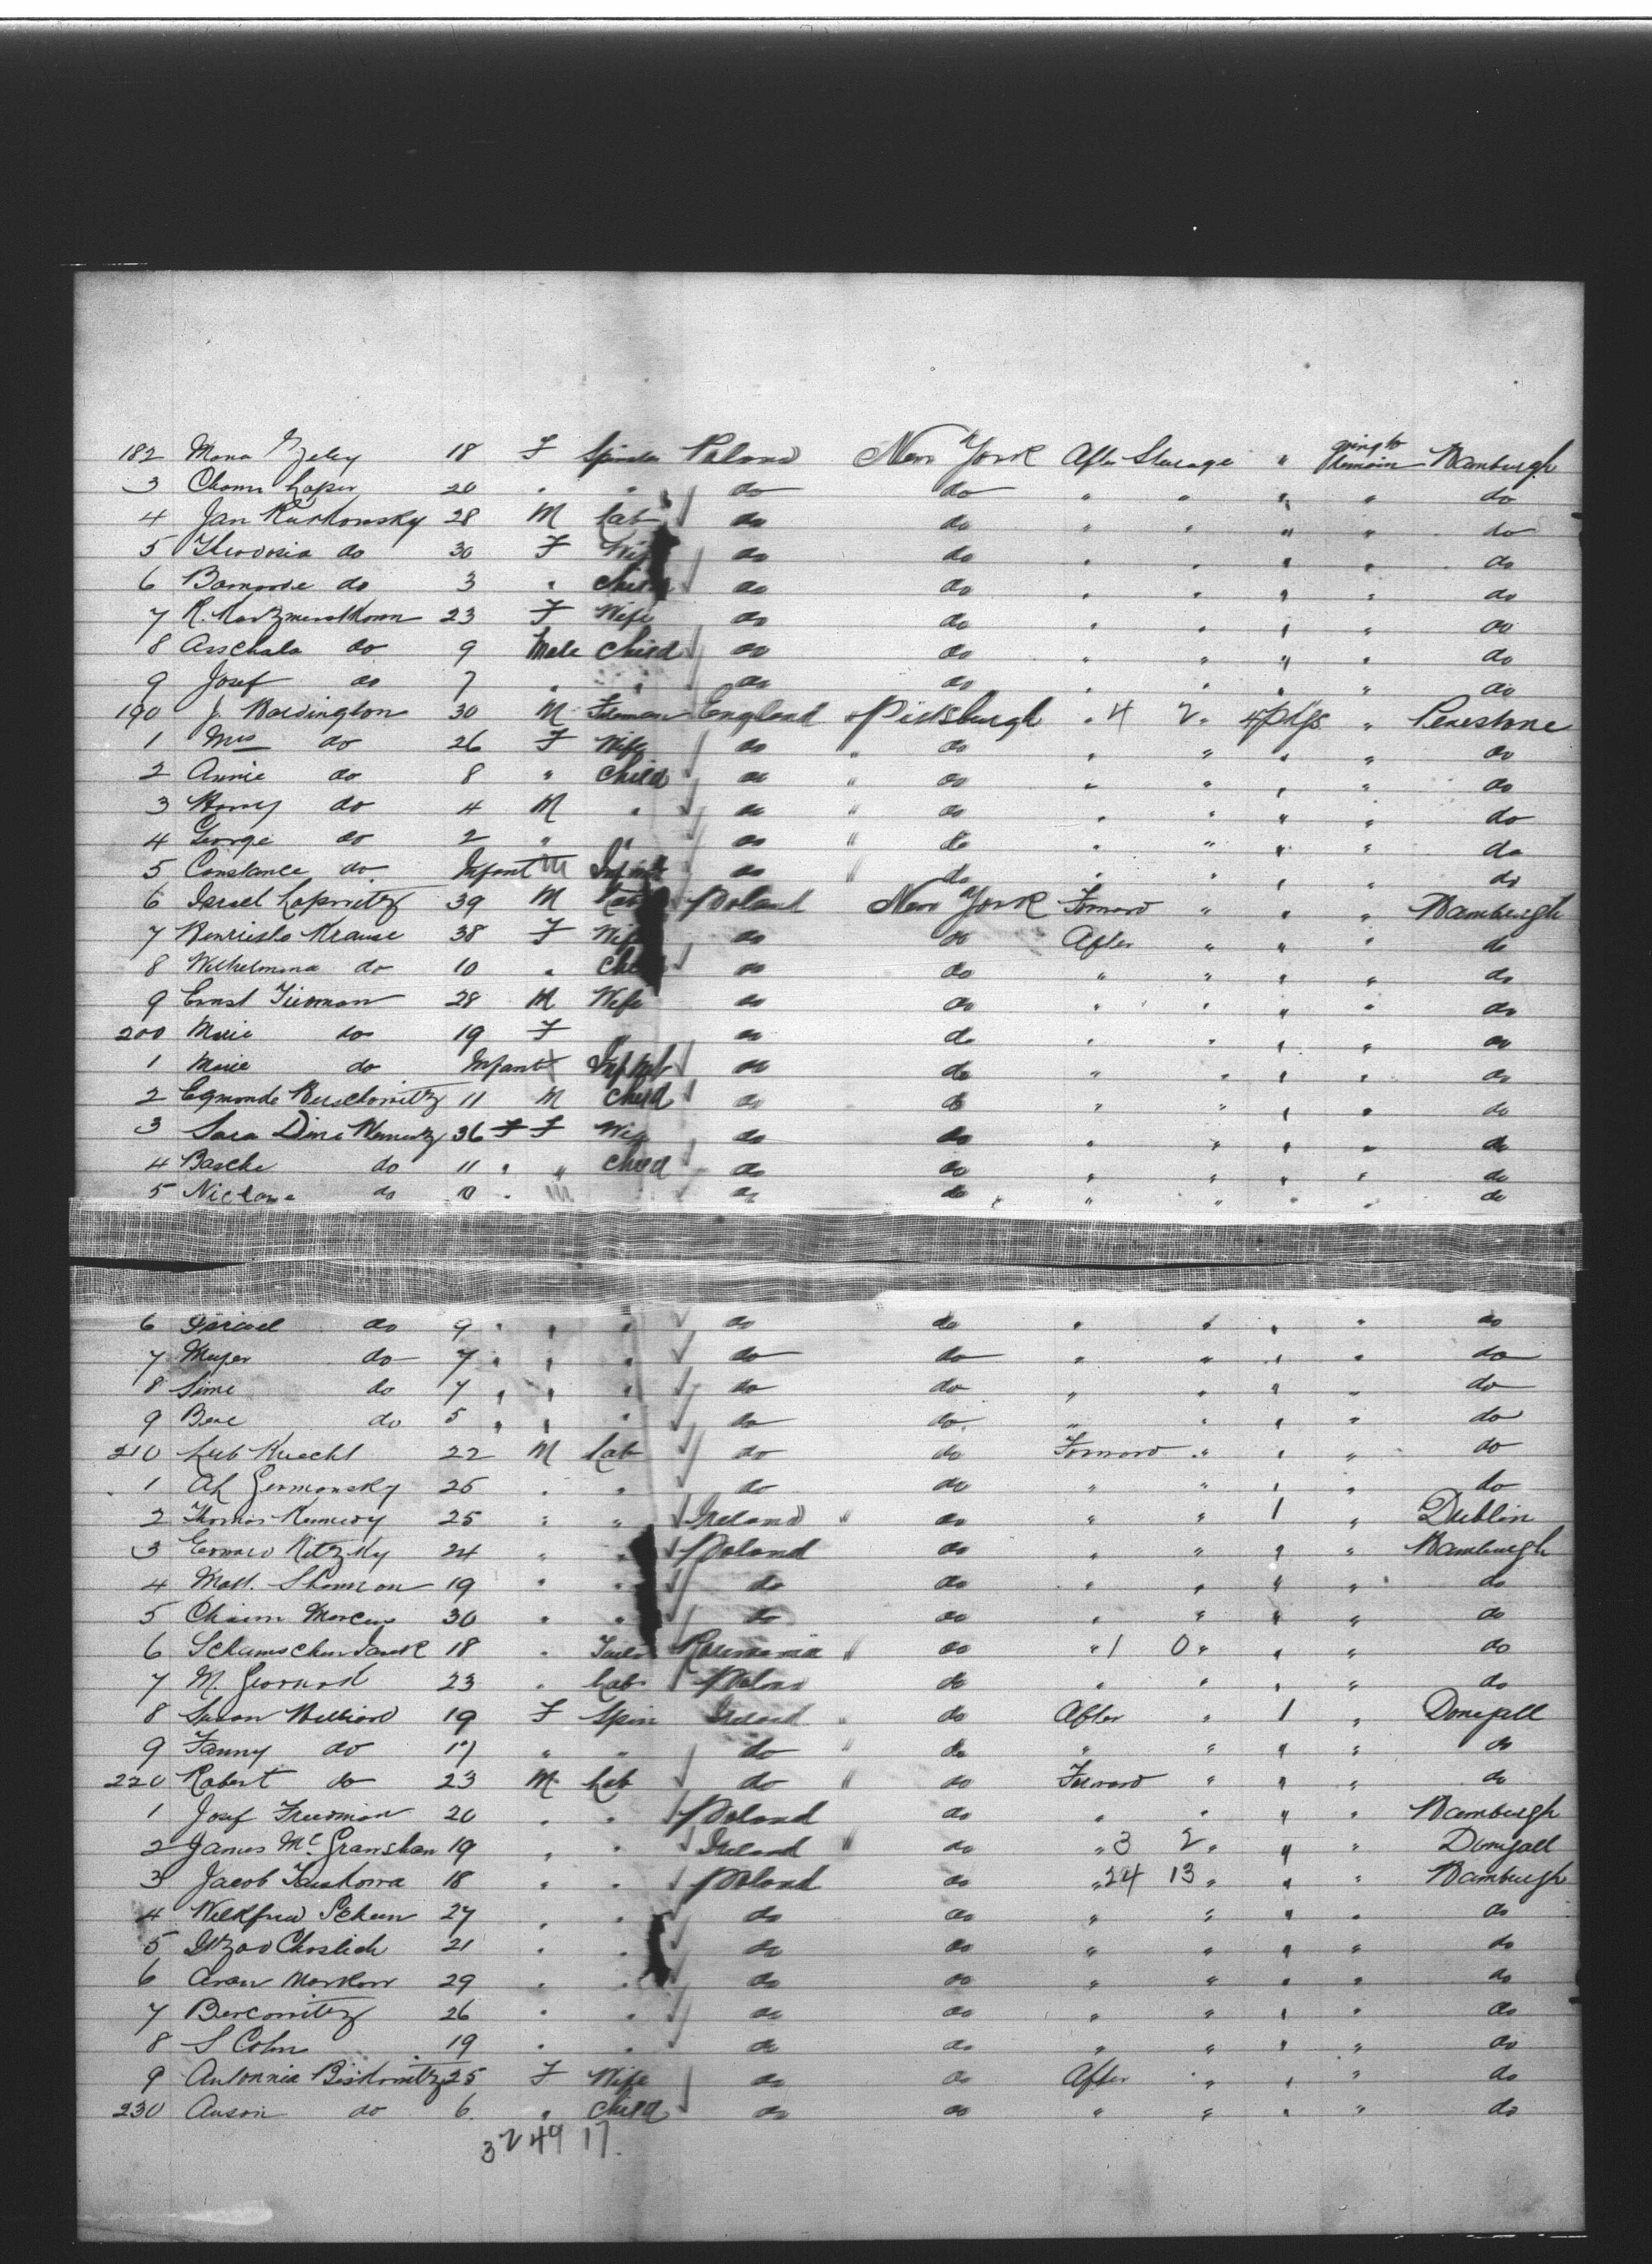 182 Mona Gzeley 18 F Spinster Poland New York After Steerage " going to Remain Hamburgh
3 Chome Laper 20 " " do do " " " " do
4 Jan Kurkowsky 28 M Lab do do " " " " do
5 Theodosia do 30 F Wife do do " " " " do
6 do 3 " Child do do " " " " do
7 R. 23 F Wife do do " " " " do
8 Asschala do 9 Male Child do do " " " " do
9 Josef do 7 " " do do " " " " do
190 J. Bardington 30 M England " Pittsburgh " 4 2 " 4 pkgs " Penestone
1 Mrs do 26 F Wife do " do " " " " do
2 Annie do 8 " Child do " do " " " " do
3 Harry do 4 M " do " do " " " " do
4 George do 2 " " do " do " " " " do
5 Constance do Infant M Infant do " do " " " " do
6 Israel Lapovitz 39 M Lab Poland New York Forward " " " Hamburgh
7 Krause 38 F Wife do do After " " " do
8 Wilhelmina do 10 " Child do do " " " " do
9 Ernst Tieman 28 M Wife do do " " " " do
200 Marie do 19 F " do do " " " " do
1 Marie do Infant Infant do do " " " " do
2 Egmonde Herschowitz 11 M Child do do " " " " do
3 Sara Dine 36 F F Wife do do " " " " do
4 Basche do 11 " " Child do do " " " " do
5 do 10 " M do do " " " " do
6 Israel do 9 " " " do do " " " " do
7 Meyer do 7 " " " do do " " " " do
8 Sime do 7 " " " do do " " " " do
9 Bere do 5 " " " do do " " " " do
210 Leib Knecht 22 M Lab do do Forward " " " do
1 Germansky 25 " " do do " " " " do
2 Thomas Kennedy 25 " " Ireland " do " " 1 " Dublin
3 Edward Kitzky 24 " " Poland do " " " " Hamburgh
4 19 " " do do " " " " do
5 Chaim Marcus 30 " " do do " " " " do
6 18 " Tailor Roumania " do " 1 0 " " " do
7 M. 23 " Lab Poland do " " " " do
8 Susan 19 F Spin Ireland " do After " 1 " Donegall
9 Fanny do 17 " " do " do " " " " do
220 Robert do 23 M Lab do " do Forward " " " do
1 Josef Freedman 20 " " Poland do " " " " Hamburgh
2 James McGranahan 19 " " Ireland " do " 3 2 " " " Donegall
3 Jacob 18 " " Poland do " 24 13 " " " Hamburgh
4 27 " " do do " " " " do
5 21 " " do do " " " " do
6 Aron 29 " " do do " " " " do
7 Bercowitz 26 " " do do " " " " do
8 S Cohn 19 " " do do " " " " do
9 Antonnia Biskowitz 25 F Wife do do After " " " do
230 do 6 " Child do do " " " " do
3 2 49 17.